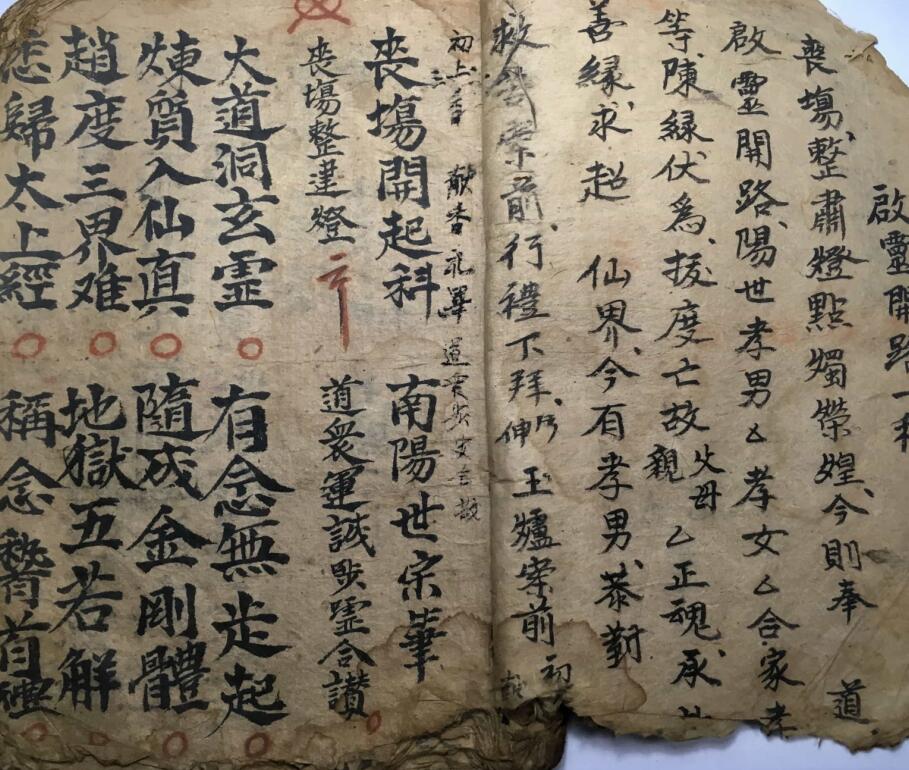 啟靈開路一科
喪塲整肅燈點燭榮煌今則奉 道
啟靈開路陽世孝男厶孝女厶合家孝
等陳緣伏為拔度亡故父母親乙正魂承
善緣求超 仙界今有孝男恭對
前行禮下拜 玉爐案前
初上 献香礼畢
喪塲開起科 南陽世宗筆
喪塲整建燈 道衆運誠 靈合讃
大道洞玄靈 有念無歨起
煉質入仙真 隨成金剛體
趙度三界难 地獄五若觧
悉歸太上經 稱念稽首禮